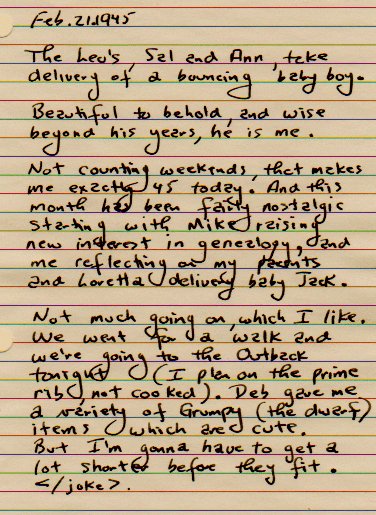 Feb. 21.1945
The Leo's, Sal and Ann, take
delivery of a bouncing baby boy.
Beautiful to behold, and wise
beyond his years, he is me.
Not counting weekends, that makes
me exactly 45 today. And this
month has been fairly nostalgic
starting with Mike raising
new interest in genealogy, and
me reflecting on my parents
and Loretta delivery baby Jack.
Not much going on, which I like.
We went for a walk and
we're going to the Outback
tonight (I plan on the prime
rib, not cooked). Deb gave me
a variety of Grumpy (the dwarf)
items which are cute.
But I'm gonna have to get a
lot shorter before they fit.
</joke>.